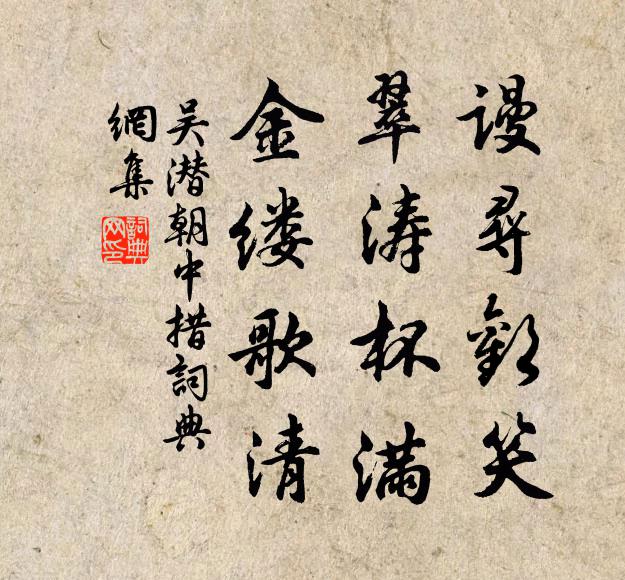 谩寻歡笑
翠涛杯满
金缕歌清
吴潜朝中措詞典
網集
詞典
网印